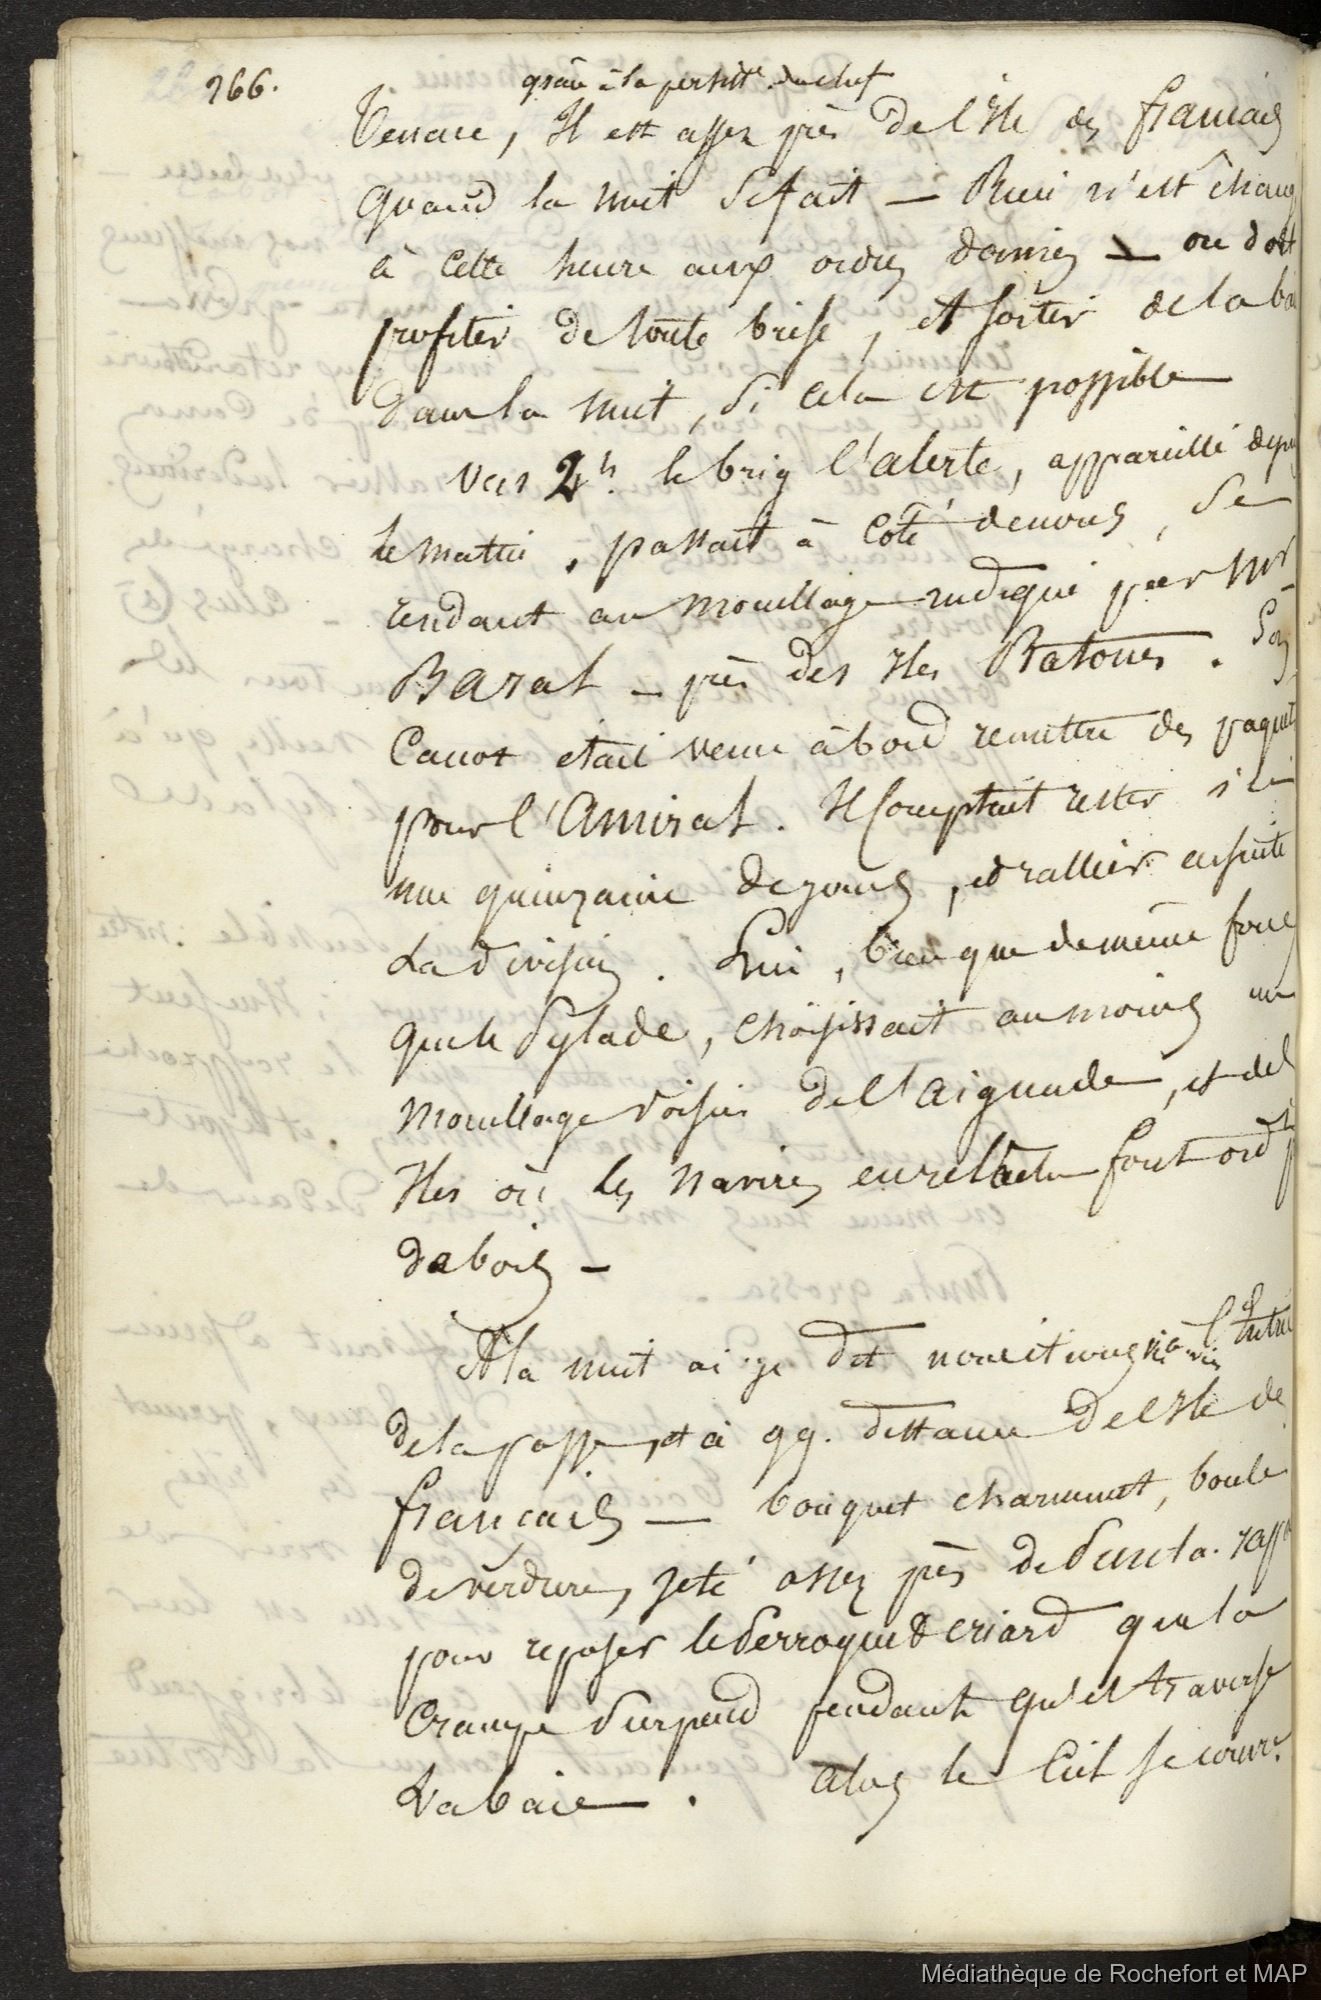 266.
grâce à la persist.ce du chef
Tenace, Il est assez près de l'Ile des français
quand la nuit se fait — Rien n'est chang
à cette heure aux ordres donnés — on doit
profiter de toute brise, et sortir de la ba
dans la nuit, si cela est possible
Vers 2h. le brig l'alerte, appareillé depu
le matin, passait à Côté de nous, se
rendant au mouillage indiqué par Mr
Baral — près des Iles Ratones. Son
Canot était venu à bord remettre des paquet
pour l'Amiral. Il comptait rester ici
une quinzaine de jours, et rallier ensuite
La division. Lui, bien que de même force
que le Pylade, choisissait au moins un
mouillage voisin de l'aiguade, et de l
Iles où les navires en relache font ord.t p
de bois —
A la nuit ai-je dit nous étions vis à vis l'Entrée
de la passe, et à 99. distance de l'Ile de
français — bouquet charmant, boule
de verdure, jeté assez près de Punta. rapa
pour reposer le Perroquet criard que la
Crampe surprend pendant qu'il traverse
La baie. Alors le Ciel se couvre
Médiathèque de Rochefort et MAP